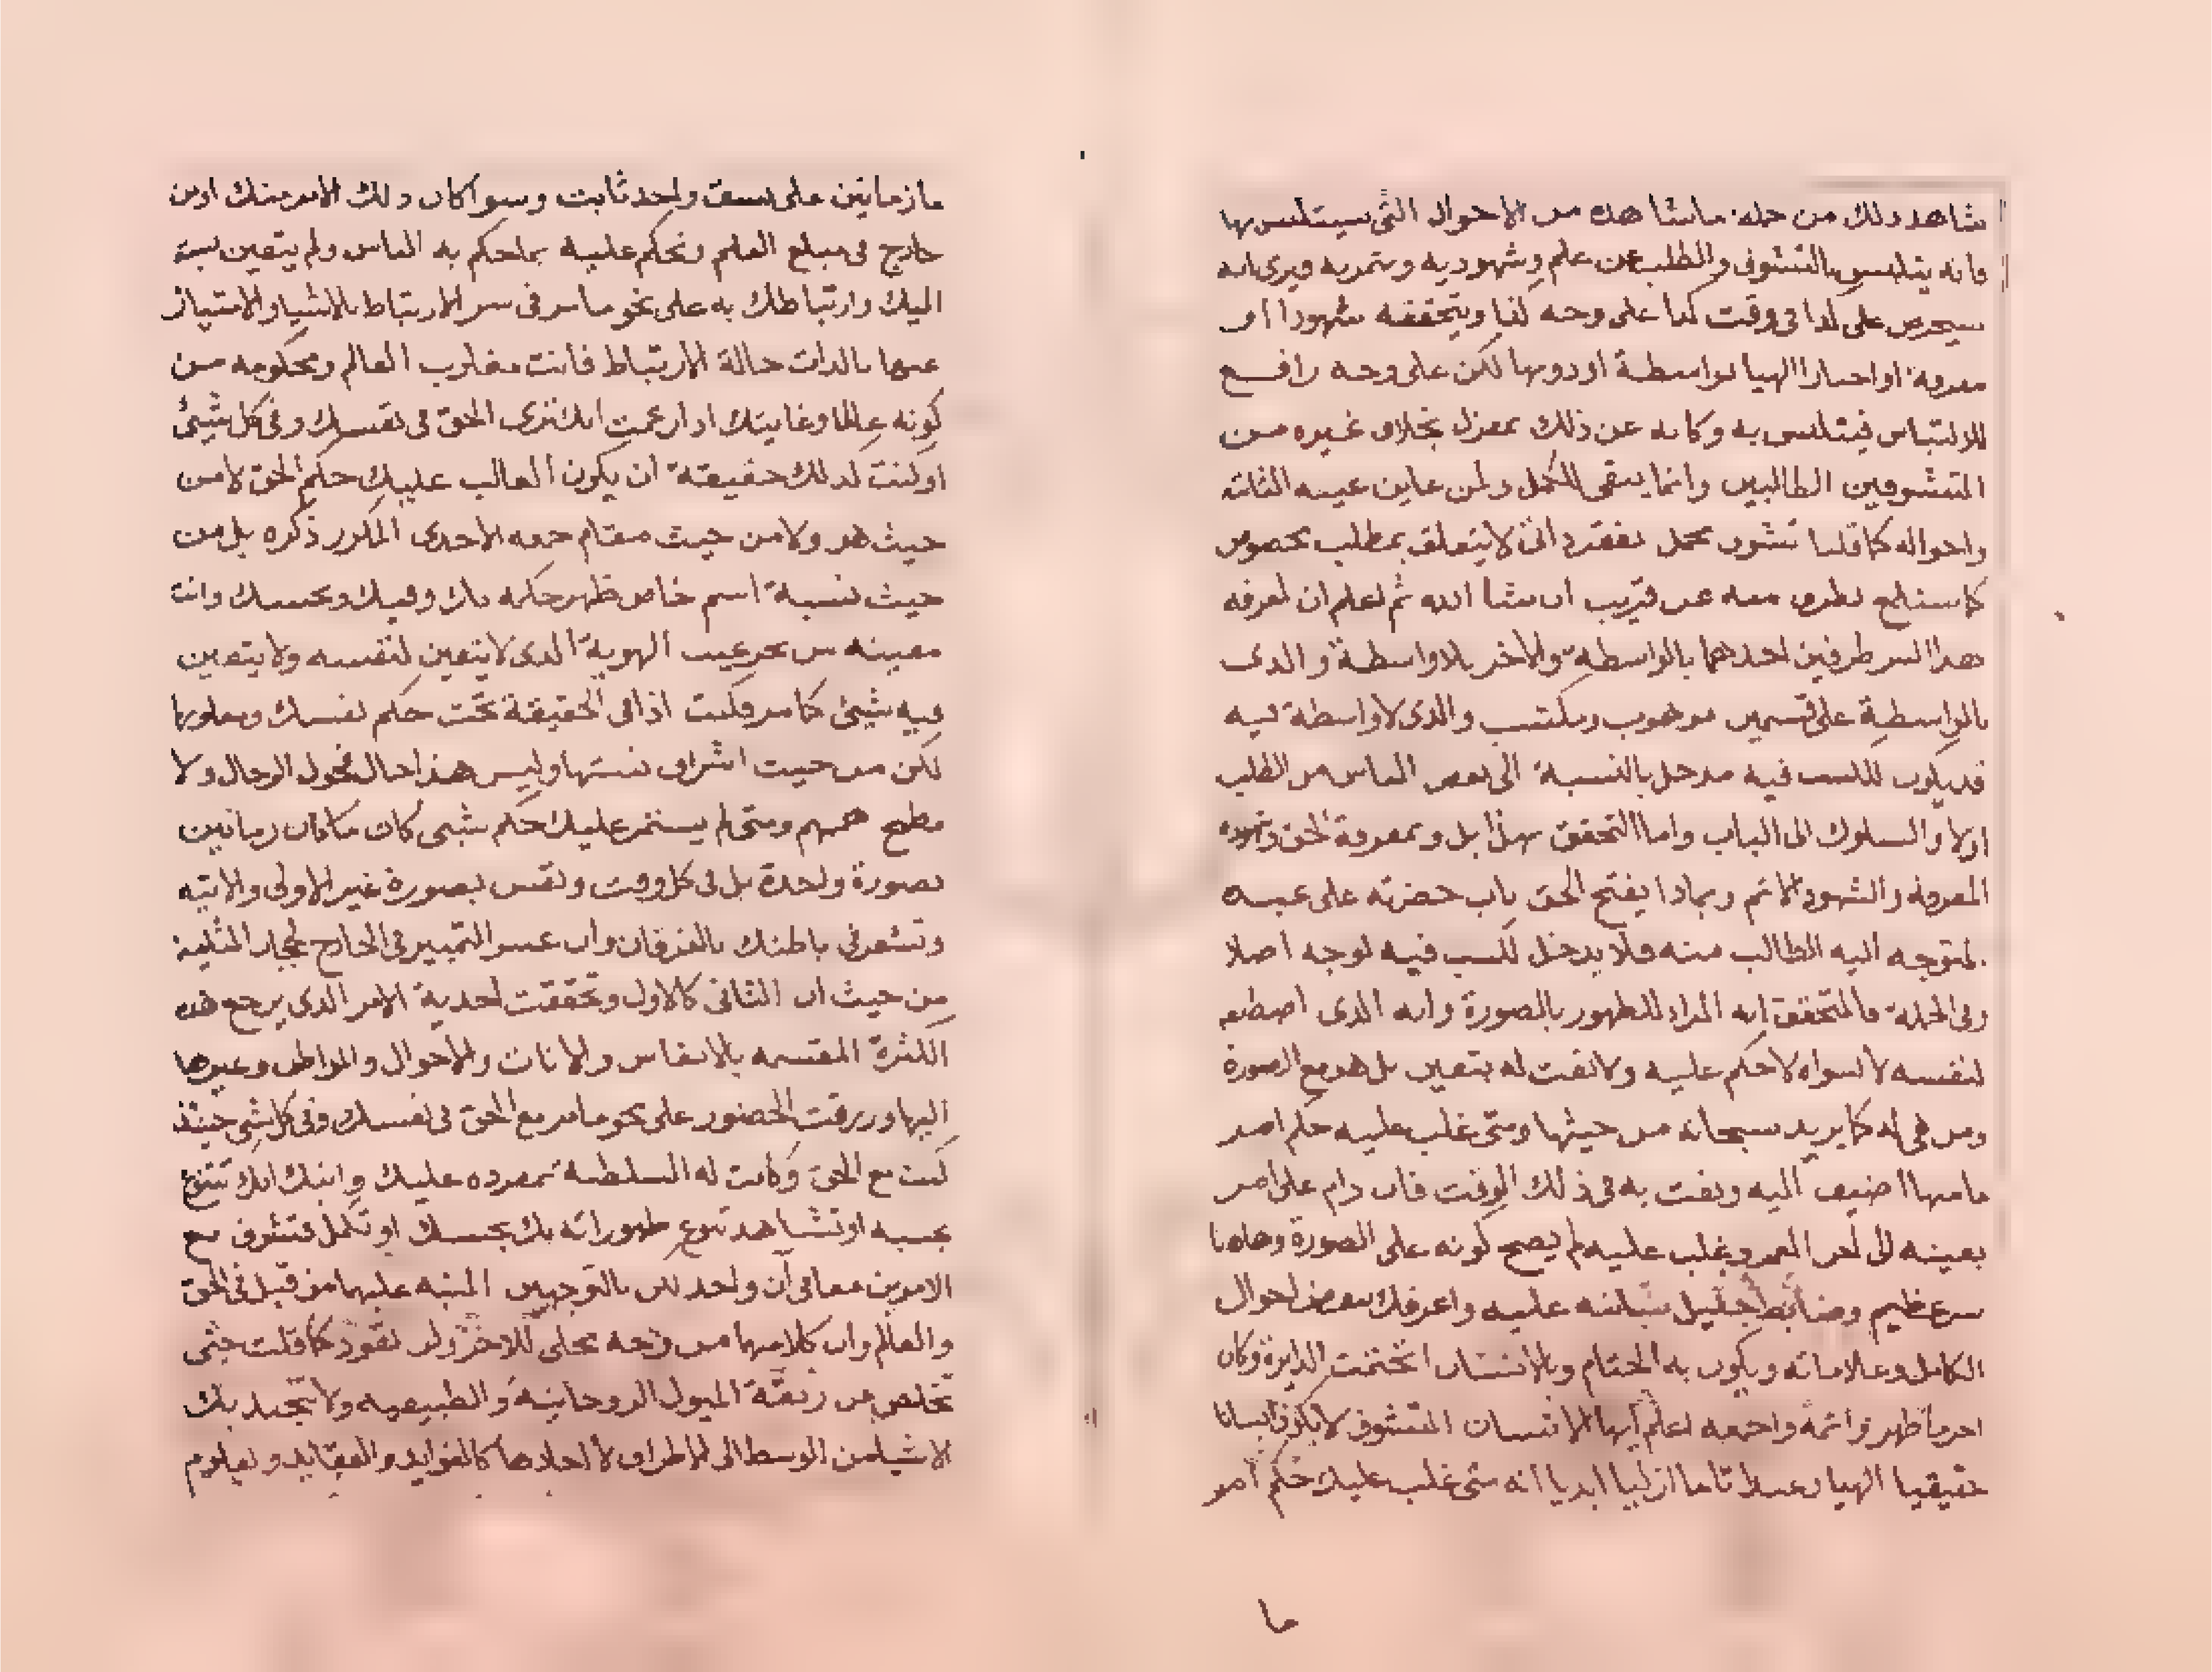 شاهد ذلك من جملة ما شاهده من الاحوال التي سيتلبس بها
فانه يتلبس بالتشوف والطلب عن علم وشهود به وبثمرته ويرى انه
سيحرص على كذا في وقت كذا على وجه كذا ويتحققه شهودا او
معرفة او اخبارا الهيا بواسطة او دونها لكن على وجه رافع
للالتباس فيتلبس به وكانه عن ذلك بمعزل بخلاف غيره من
المتشوفين الطالبين وانما يبقى للكمل ولمن عاين عينه الثابتة
واحواله كما قلنا تشوف مجمل بفقر ذاتي لا يتعلق بمطلب مخصوص
كما سنلمع بطرف منه عن قريب ان شا الله ثم لتعلم ان لمعرفة
هذا السر طرفين احدهما بالواسطة والاخر بلا واسطة والذي
بالواسطة على قسمين موهوب ومكتسب والذي لا واسطة فيه
قد يكون للكسب فيه مدخل بالنسبة الى بعض الناس من الطلب
اولا والسلوك الى الباب واما التحقق بهذا بل وبمعرفة الحق وشهوده
المعرفة والشهود الاتم وبماذا يفتح الحق باب حضرته على عبده
المتوجه اليه الطالب منه فلا يدخل للكسب فيه بوجه اصلا
وفي الجملة فالمتحقق انه المراد للظهور بالصورة وانه الذي اصطنعه
لنفسه لا لسواه لا حكم عليه ولا نعت له يتعين بل هو مع الصورة
ومن هي له كما يريد سبحانه من حيثها ومتى غلب عليه حكم امر
ما منها اضيف اليه ونعت به في ذلك الوقت فان دام على امر
بعينه الى اخر العمر وغلب عليه لم يصح كونه على الصورة وهاهنا
سر عظيم وضابط جليل سانبه عليه واعرفك ببعض احوال
الكامل وعلاماته ويكون به الختام وبالانسان اختتمت الدايرة وكان
اخر ما ظهر واتمه واجمعه اعلم ايها الانسان المتشوف لان يكون انسانا
حقيقيا الهيا وعبدا تاما ازليا ابديا انه متى غلب عليك حكم امر
ما
ما زمانين على نسق واحد ثابت وسوا كان ذلك الامر منك او من
خارج في مبلغ العلم ونحكم عليه بما حكم به الناس ولم يتعين نسبته
اليك وارتباطك به على نحو ما مر في سر الارتباط بالاشيا والامتياز
عنها بالذات حالة الارتباط فانت مغلوب العالم ومحكومه من
كونه عالما وغايتك اذا زعمت انك ترى الحق في نفسك وفي كل شيئ
او كنت لذلك حقيقة ان يكون الغالب عليك حكم الحق لا من
حيث هو ولا من حيث مقام جمعه الاحدي المكرر ذكره بل من
حيث نسبة اسم خاص ظهر حكمه بك وفيك وبحسبك وانت
معينه من بحر غيب الهوية الذي لا يتعين لنفسه ولا يتعين
فيه شيئ كما مر فكنت اذا في الحقيقة تحت حكم نفسك ومغلوبها
لكن من حيث اشراف نسبتها وليس هذا حال فحول الرجال ولا
مطمح هممهم ومتى لم يستمر عليك حكم شيئ كان ما كان زمانين
بصورة واحدة بل في كل وقت ونفس بصورة غير الاولى والاتيه
وتشعر في باطنك بالفرقان وان عسر التمييز في الخارج لحجاب المثلية
من حيث ان الثاني كالاول وتحققت احدية الامر الذي يرجع هذه
الكثرة المنقسمه بالانفاس والانات والاحوال والمواطن وغيرها
اليها ورزقت الحضور على نحو ما مر مع الحق في نفسك وفي كل شي حينئذ
كنت مع الحق وكانت له السلطنة بمفرده عليك وانبك انك تتنوع
بحسبه او تشاهد تنوع ظهوراته بك بحسبك او تكمل فتشرف مع
الامرين معا في آن واحد لكن بالتوجهين المنبه عليهما من قبل في الحق
والعالم وان كلا منهما من وجه مجلى للاخر ولن تفوز كما قلت حتى
تخلص من ربقة الميول الروحانية والطبيعيه ولا تنجبد بك
الاشيا من الوسط الى الاطراف لا احادها كالفوايد والعقايد والعلوم